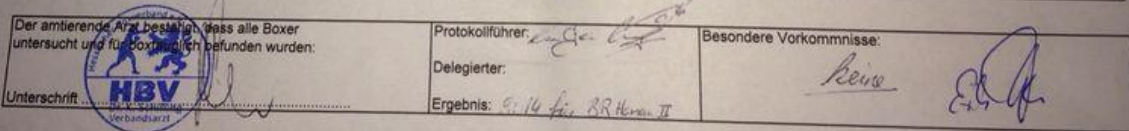 Der amtierende Arzt bestätigt, dass alle Boxer
untersucht und für boxtauglich befunden wurden:
Unterschrift
HBV
Verbandsarzt
Protokollführer:
Delegierter:
Ergebnis: 9:14 für BR Hanau II
Besondere Vorkommnisse:
Keine